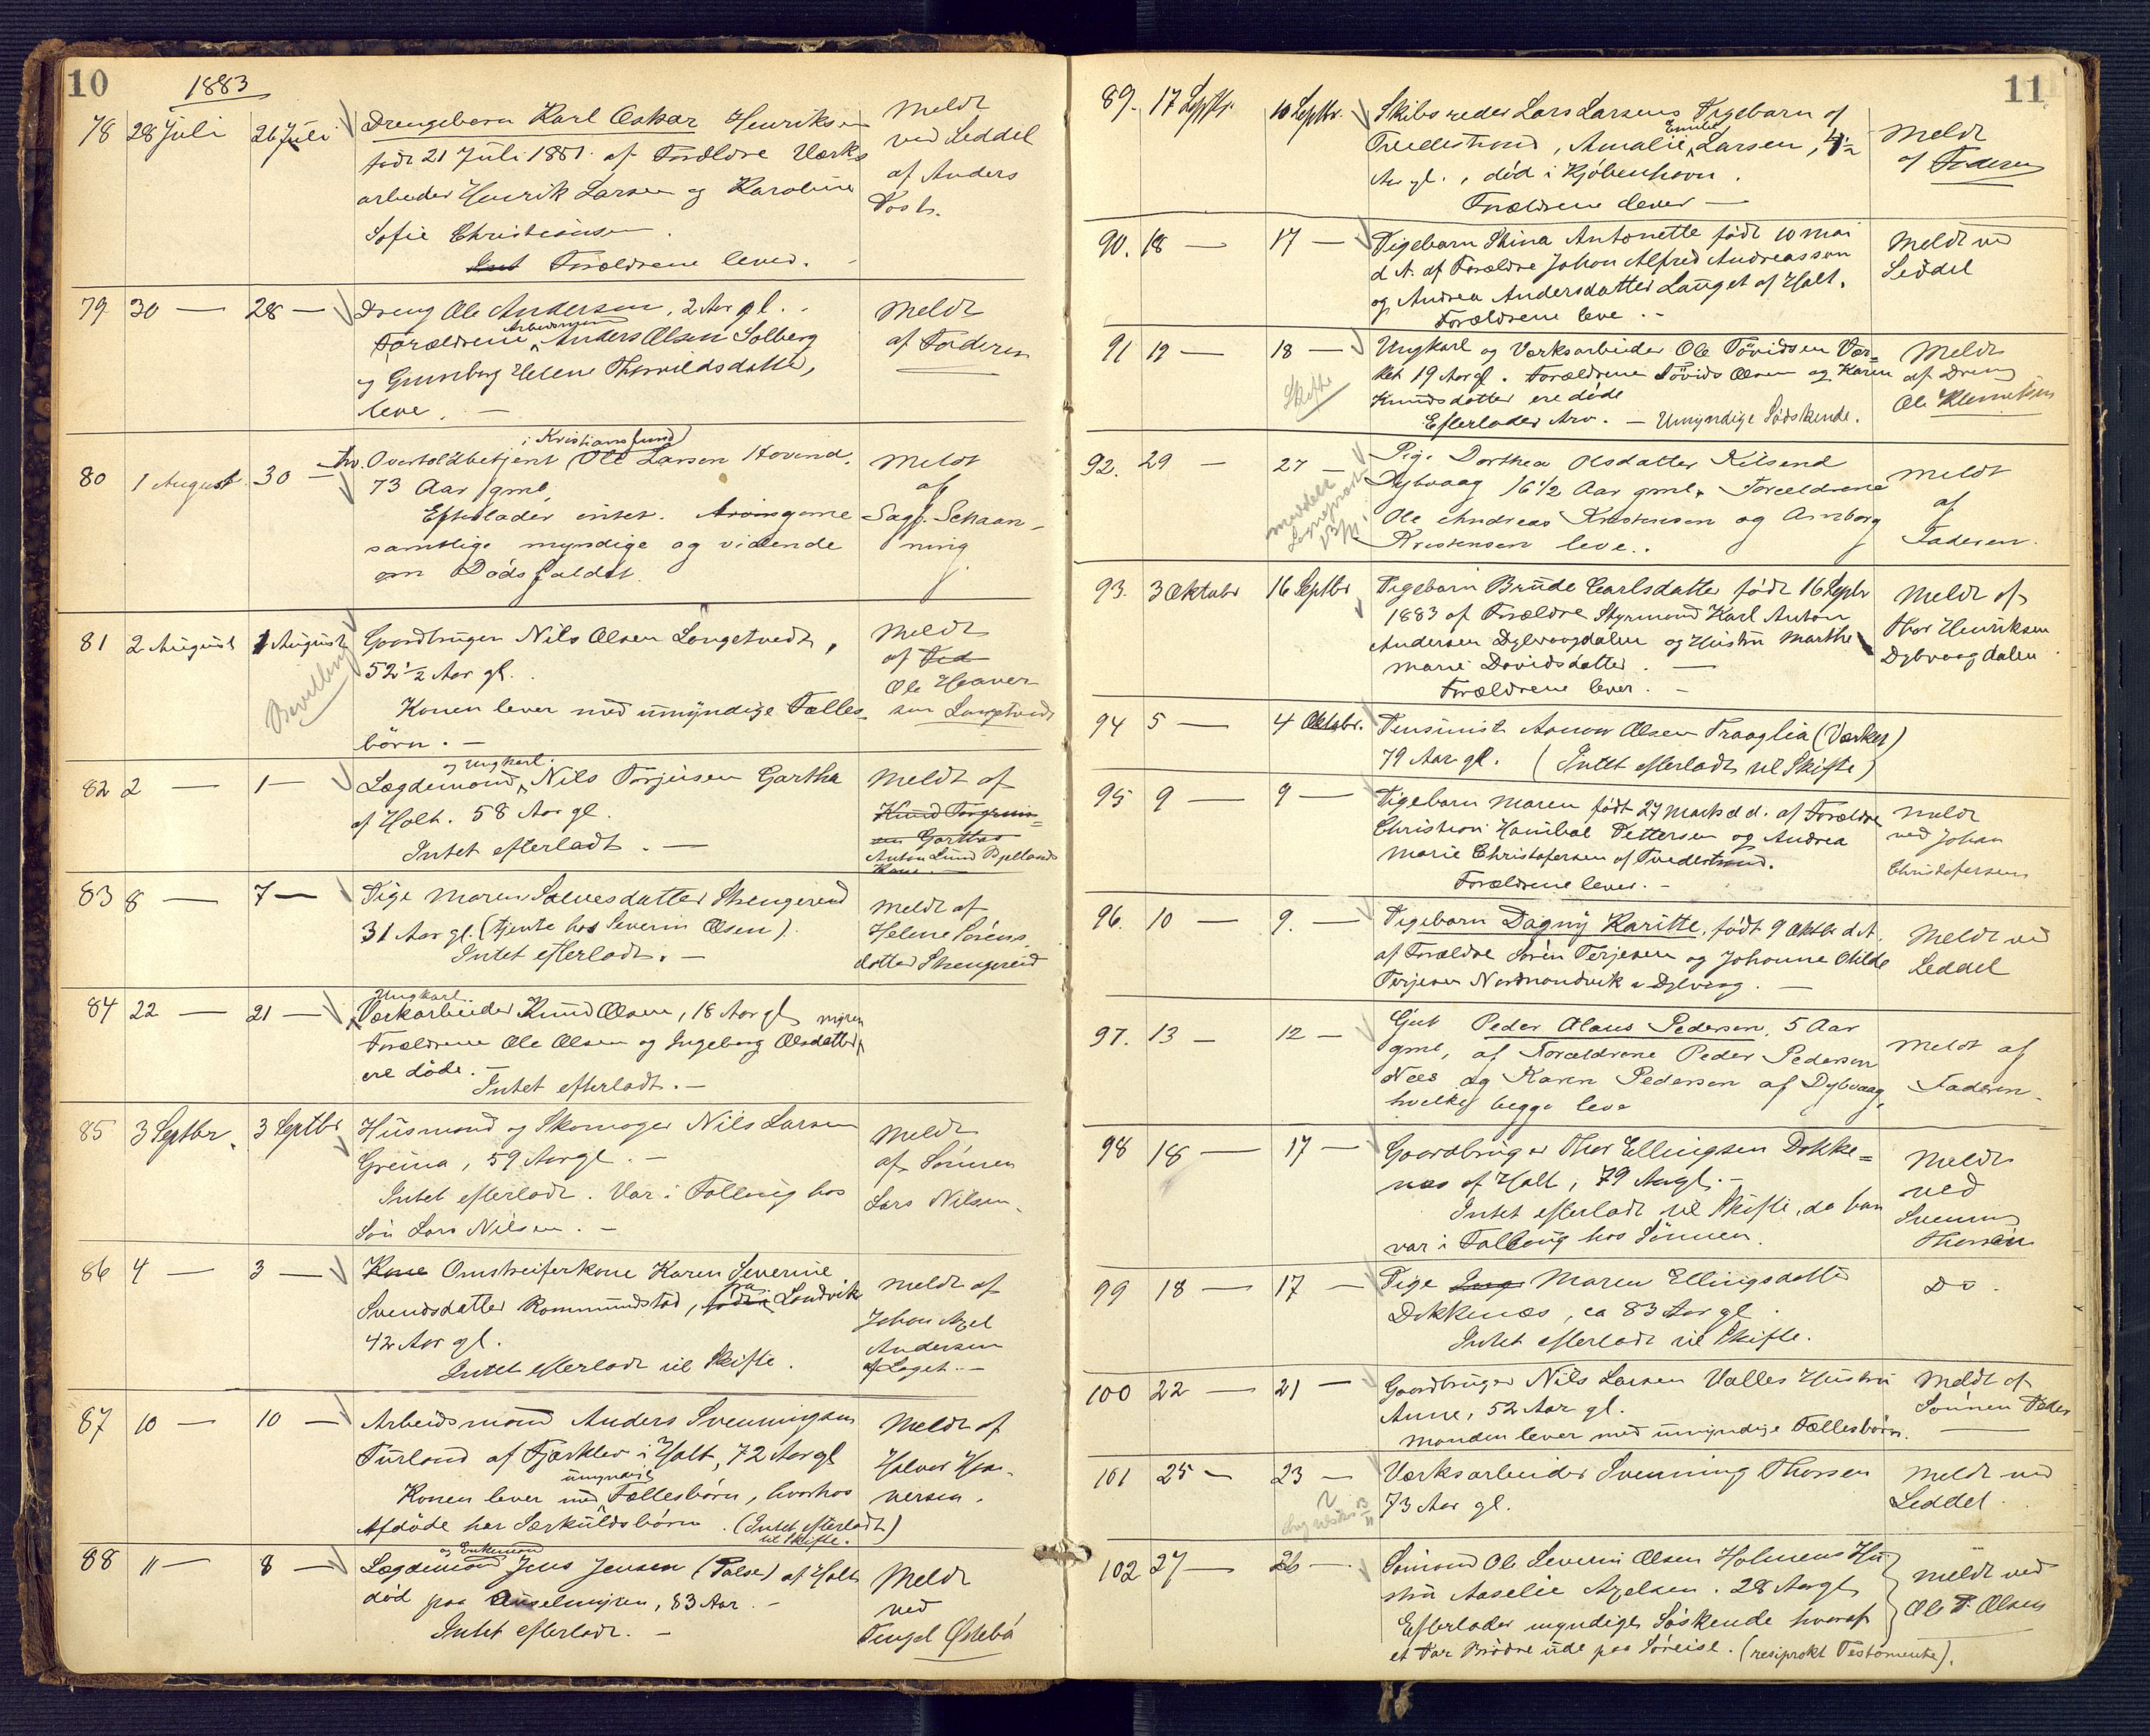 10
1883
78 28 Juli 26 Juli Drengebarn Karl Oskar Henriksen
født 21 Juli 1881 af Forældre Værks
arbeider Henrik Larsen og Karoline
Sofie Christiansen.
Forældrene lever.
Meldt
ved Seddel
af Anders
79 30 — 28 — Dreng Ole Andersen, 2 Aar gl.
Arbeidsmann
Forældrene Anders Olsen Solberg
og Gunborg Helene Thorvildsdatter,
leve. —
Meldt
af Faderen
i Kristianssund
80 1 August 30 — fv. Overtoldbetjent Ole Larsen Hovind.
73 Aar gml.
Efterlader intet. Arvingerne
samtlige myndige og vidende
om Dødsfaldet.
Meldt
af
Sagf. Schaan-
ning.
81 2 August 1 August Gaardbruger Nils Olsen Longetvedt,
52 1/2 Aar gl.
Konen lever med umyndige Fælles
børn. —
Bevilling
Meldt
af Fad
Ole Haaver
sen Langtvedt
og Ungkarl.
82 2 — 1 — Lægdemand Nils Torjusen Gartha
af Holt. 58 Aar gl.
Intet efterladt. —
Meldt af
Knud Torgrim=
sen Gartha
Anton Lund Bjellands
Kone. —
83 8 — 7 — Pige Maren Salvesdatter Skengereid
31 Aar gl. (tjente hos Severin Olsen).
Intet efterladt. —
Meldt af
Helene Sørens
datter Skengereid
Ungkarl
84 22 — 21 — Værkarbeider Knud Olsen, 18 Aar gl
Forældrene Ole Olsen og Ingeborg Olsdatter
ere døde. —
Intet efterladt. —
85 3 Septbr. 3 Septbr Husmand og Skomager Nils Larsen
Greina, 59 Aar gl. —
Intet efterladt. Var i Follaug hos
Søn Lars Nilsen. —
Meldt
af Sønnen
Lars Nilsen.
86 4 — 3 — Kone Omstreiferkone Karen Severine
Svendsdatter Rommundstad, fra Landvik
42 Aar gl.
Intet efterladt til Skifte.
Meldt af
Johan Axel
Andersen
af Laget. —
87 10 — 10 — Arbeidsmand Anders Svenningsen
Furland af Fjærklev i Holt, 72 Aar gl
umyndige
Konen lever med Fællesbørn, hvorhos
Afdøde har Særkuldsbørn. (Intet efterladt)
til Skifte.
Meldt af
Halvor Hal-
versen.
og Enkemand
88 11 — 8 — Lægdemand Jens Jensen (Palse) af Holt
død paa Anselmyren, 83 Aar. —
Intet efterladt. —
Meldt
ved
Tengel Østebø
11
89. 17 Septbr. 10 Septbr. Skibsreder Lars Larsens Pigebarn af
Tvedestrand, Amalie Emilie Larsen, 4 1/2
Aar gl., død i Kjøbenhavn.
Forældrene lever —
Meldt
af Faderen
90. 18 — 17 — Pigebarn Stina Antonette født 10 Mai
d. A. af Forældre Johan Alfred Andreassen
og Andrea Andersdatter Lauget af Holt.
Forældrene leve. —
Meldt ved
Seddel
91 19 — 18 — Ungkarl og Værksarbeider Ole Tøvidsen Vær=
ket 19 Aar gl. Forældrene Tøvids Olsen og Karen
Knudsdatter ere døde
Efterlader Arv. — Umyndige Sødskende.
Skifte
Meldt
af Dreng
Ole Klemetsen
92. 29 — 27 — Pige Dorthea Olsdatter Kilsend
Dybvaag 16 1/2 Aar gml. Forældrene
Ole Andreas Kristensen og Amborg
Kristensen leve.
Meldt
af
Faderen.
93. 3 Oktober 16 Septbr Pigebarn Brude Carlsdatter født 16 Septr
1883 af Forældre Styrmand Karl Anton
Andersen Dybvaagdalen og Hustru Marthe
Marie Davidsdatter. —
Forældrene lever. —
Meldt af
Thor Henriksen
Dybvaagdalen
94 5 — 4 Oktober. Pensionist Aanon Olsen Fraaglia (Værket)
79 Aar gl. (Intet efterladt til Skifte)
95 9 — 9 — Pigebarn Maren født 27 Marts d. d. af Forældre
Christian Hanibal Pettersen og Andrea
Marie Christofersen af Tvedestrand.
Forældrene lever. —
Meldt
ved Johan
Christofersen
96. 10 — 9. — Pigebarn Dagny Karitte, født 9 Oktbr d. A.
af Forældre Søren Terjesen og Johanne Otilde
Terjesen Nordmandvik i Dybvaag. —
Meldt ved
Seddel
97. 13 — 12 — Gut Peder Olaus Pedersen, 5 Aar
gml, af Forældrene Peder Pedersen
Næs og Karen Pedersen af Dybvaag,
hvilke begge leve
Meldt af
Faderen.
98 18 — 17 — Gaardbruger Thor Ellingsen Dokke=
næs af Holt, 79 Aar gl. —
Intet efterladt til Skifte, da han
var i Follaug hos Sønnen.
Meldt
ved
Svenning
Thorsen
99 18 — 17 — Pige Maren Ellingsdatter
Dokkenæs, ca 83 Aar gl.
Intet efterladt til Skifte.
Do.
100 22 — 21 — Gaardbruger Nils Larsen Valles Hustru
Anne, 52 Aar gl.
Manden lever med umyndige Fællesbørn.
Meldt af
Sønnen Peder
101 25 — 23 — Værksarbeider Svenning Thorsen
73 Aar gl.
Meldt ved
Seddel.
102 27 — 26 — Sømand Ole Severin Olsen Holmens Hu-
stru Aaselie Axelsen. 28 Aar gl
Efterlader myndige Søskende hvoraf
et Par Brødre ude paa Søreise. (resiprokt Testamente).
Meldt ved
Ole T. Olsen